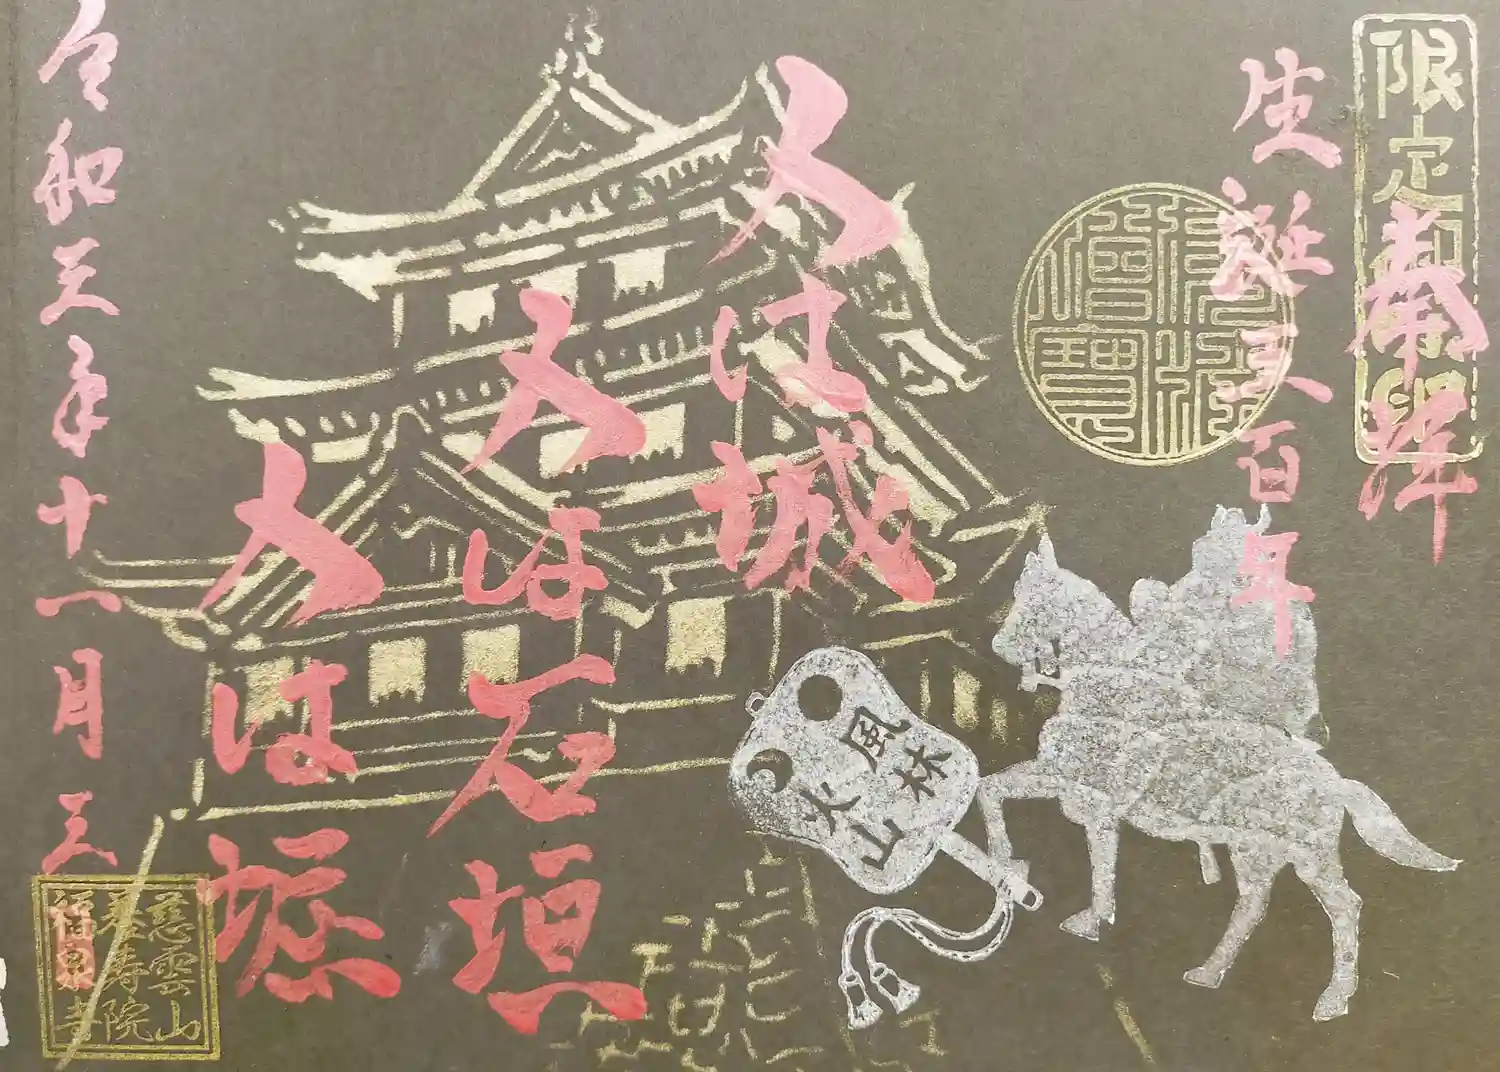 限定御朱印
奉拝
生誕五百年
佛法僧寶
人は城
人は石垣
人は堀
風林
火山
令和三年十一月三
慈雲山
萬壽院
福泉寺